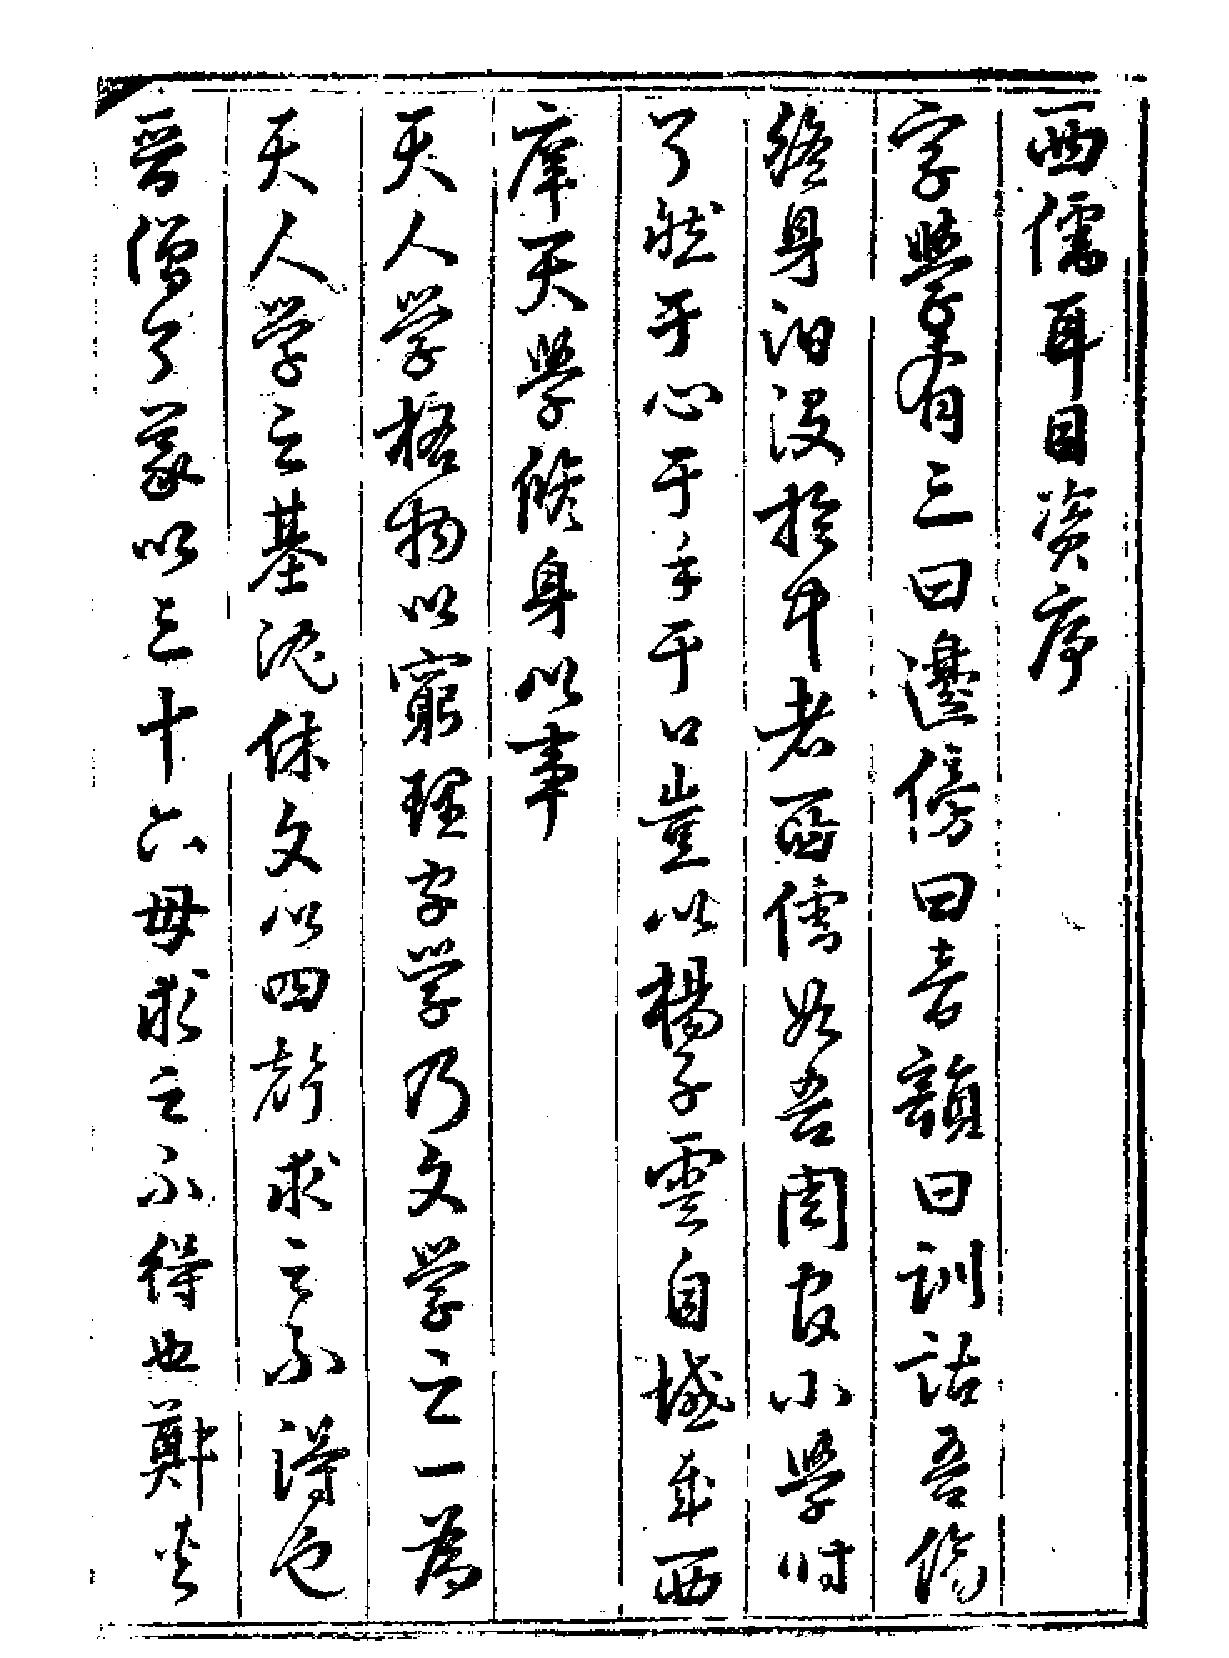 西儒耳目資序
字學有三曰邊傍曰音韻曰訓詁吾儕
終身汩沒於中老西儒如吾國官小學時
了然于心于手于口豈以楊子雲自域哉西
庠天學修身以事
天人學格物以窮理字學乃文學之一為
天人學之基沈休文以四聲求之不得也
晉僧了義以三十六母求之不得也鄭夾